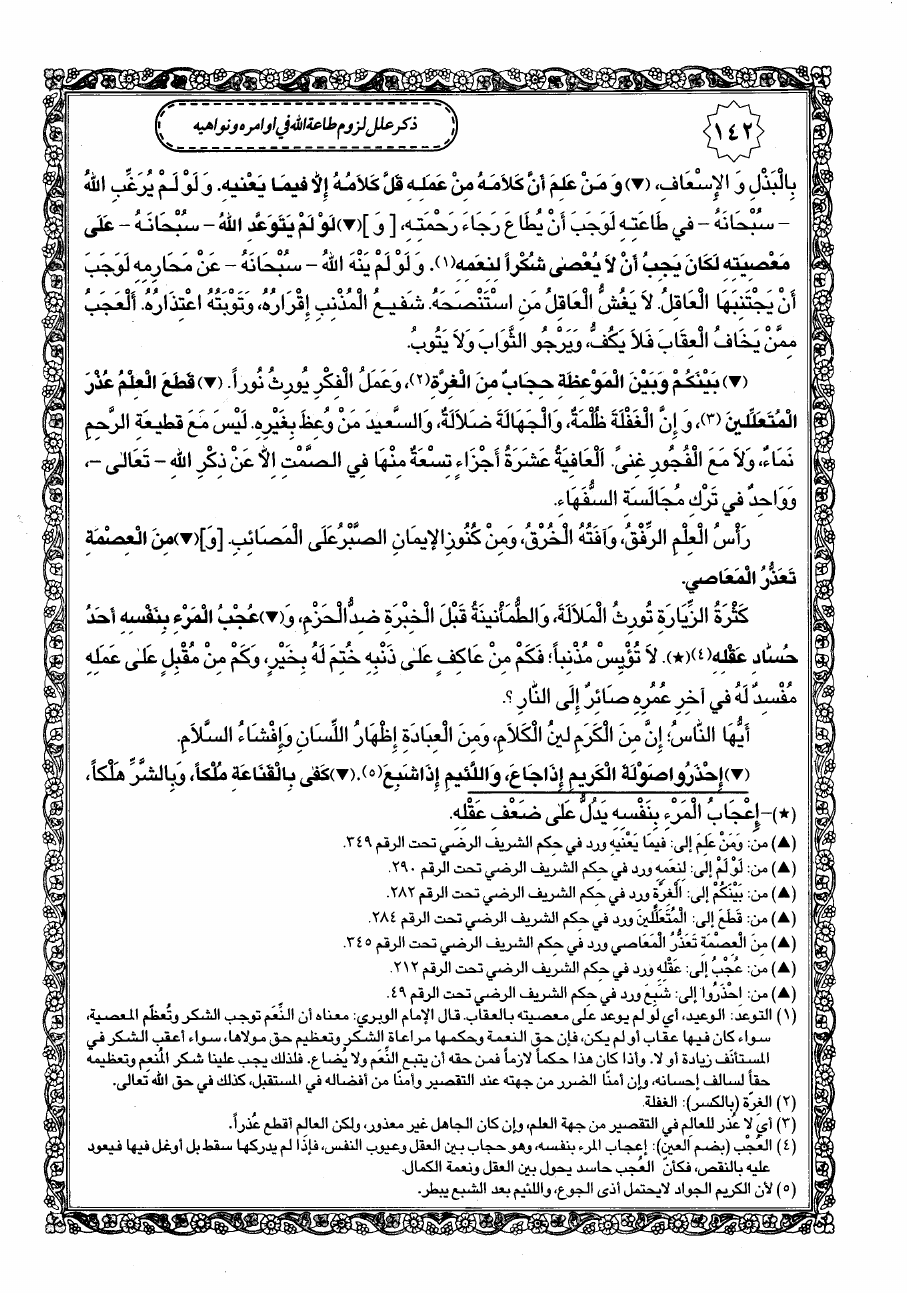 ١٤٢
ذكر علل لزوم طاعة الله في أوامره ونواهيه
بِالْبَذْلِ وَ الإِسْعَافِ، (▼) وَ مَنْ عَلِمَ أَنَّ كَلاَمَهُ مِنْ عَمَلِهِ قَلَّ كَلاَمُهُ إِلاَّ فيمَا يَعْنيهِ. وَ لَوْ لَمْ يُرَغِّبِ اللهُ
– سُبْحَانَهُ – في طَاعَتِهِ لَوَجَبَ أَنْ يُطَاعَ رَجَاءَ رَحْمَتِهِ، [ وَ ] (▼) لَوْ لَمْ يَتَوَعَّدِ اللهُ – سُبْحَانَهُ – عَلى
مَعْصِيَتِهِ لَكَانَ يَجِبُ أَنْ لاَ يُعْصى شُكْراً لِنِعَمِهِ(١). وَ لَوْ لَمْ يَنْهَ اللهُ – سُبْحَانَهُ – عَنْ مَحَارِمِهِ لَوَجَبَ
أَنْ يَجْتَنِبَهَا الْعَاقِلُ. لاَ يَغُشُّ الْعَاقِلُ مَنِ اسْتَنْصَحَهُ. شَفيعُ الْمُذْنِبِ إِقْرَارُهُ، وَتَوْبَتُهُ اعْتِذَارُهُ. أَلْعَجَبُ
مِمَّنْ يَخَافُ الْعِقَابَ فَلاَ يَكُفُّ، وَيَرْجُو الثَّوَابَ وَلاَ يَتُوبُ.
(▼) بَيْنَكُمْ وَبَيْنَ الْمَوْعِظَةِ حِجَابٌ مِنَ الْغِرَّةِ(٢)، وَعَمَلُ الْفِكْرِ يُورِثُ نُوراً. (▼) قَطَعَ الْعِلْمُ عُذْرَ
الْمُتَعَلِّلينَ (٣)، وَ إِنَّ الْغَفْلَةَ ظُلْمَةٌ، وَالْجَهَالَةَ ضَلاَلَةٌ، وَالسَّعيدَ مَنْ وُعِظَ بِغَيْرِهِ. لَيْسَ مَعَ قَطيعَةِ الرَّحِمِ
نَمَاءٌ، وَلاَ مَعَ الْفُجُورِ غِنىً. اَلْعَافِيَةُ عَشَرَةُ أَجْزَاءٍ تِسْعَةٌ مِنْهَا فِي الصَّمْتِ إِلاَّ عَنْ ذِكْرِ اللهِ – تَعَالى –،
وَوَاحِدٌ في تَرْكِ مُجَالَسَةِ السُّفَهَاءِ.
رَأْسُ الْعِلْمِ الرِّفْقُ، وَآفَتُهُ الْخُرْقُ، وَمِنْ كُنُوزِ الإيمَانِ الصَّبْرُ عَلَى الْمَصَائِبِ. [وَ] (▼) مِنَ الْعِصْمَةِ
تَعَذُّرُ الْمَعَاصي.
كَثْرَةُ الزِّيَارَةِ تُورِثُ الْمَلاَلَةَ، وَالطُّمَأْنينَةُ قَبْلَ الْخِبْرَةِ ضِدُّ الْحَزْمِ، وَ(▼) عُجْبُ الْمَرْءِ بِنَفْسِهِ أَحَدُ
حُسَّادِ عَقْلِهِ(٤)(★). لاَ تُؤْيِسْ مُذْنِباً؛ فَكَمْ مِنْ عَاكِفٍ عَلى ذَنْبِهِ خُتِمَ لَهُ بِخَيْرٍ، وَكَمْ مِنْ مُقْبِلٍ عَلى عَمَلِهِ
مُفْسِدٌ لَهُ في آخِرِ عُمُرِهِ صَائِرٌ إِلَى النَّارِ ؟.
أَيُّهَا النَّاسُ؛ إِنَّ مِنَ الْكَرَمِ لينُ الْكَلاَمِ، وَمِنَ الْعِبَادَةِ إِظْهَارُ اللِّسَانِ وَإِفْشَاءُ السَّلاَمِ.
(▼) إِحْذَرُوا صَوْلَةَ الْكَريمِ إِذَا جَاعَ، وَاللَّئيمِ إِذَا شَبِعَ(٥). (▼) كَفى بِالْقَنَاعَةِ مُلْكاً، وَبِالشَّرِّ هُلْكاً،
(★)– إِعْجَابُ الْمَرْءِ بِنَفْسِهِ يَدُلُّ عَلى ضَعْفِ عَقْلِهِ.
(▲) من: وَمَنْ عَلِمَ إلى: فيمَا يَعْنيهِ ورد في حكم الشريف الرضي تحت الرقم ٣٤٩.
(▲) من: لَوْ لَمْ إلى: لِنِعَمِهِ ورد في حكم الشريف الرضي تحت الرقم ٢٩٠.
(▲) من: بَيْنَكُمْ إلى: اَلْغِرَّةِ ورد في حكم الشريف الرضي تحت الرقم ٢٨٢.
(▲) من: قَطَعَ إلى: الْمُتَعَلِّلينَ ورد في حكم الشريف الرضي تحت الرقم ٢٨٤.
(▲) مِنَ الْعِصْمَةِ تَعَذُّرُ الْمَعَاصي ورد في حكم الشريف الرضي تحت الرقم ٣٤٥.
(▲) من: عُجْبُ إلى: عَقْلِهِ ورد في حكم الشريف الرضي تحت الرقم ٢١٢.
(▲) من: إِحْذَرُوا إلى: شَبِعَ ورد في حكم الشريف الرضي تحت الرقم ٤٩.
(١) التوعد: الوعيد، أي لو لم يوعد على معصيته بالعقاب. قال الإمام الوبري: معناه أن النِّعَم توجب الشكر وتُعظّم المعصية،
سواء كان فيها عقاب أو لم يكن، فإن حق النعمة وحكمها مراعاة الشكر وتعظيم حق مولاها، سواء أعقب الشكر في
المستأنف زيادة أو لا. وأذا كان هذا حكماً لازماً فمن حقه أن يتبع النِّعَم ولا يُضاع. فلذلك يجب علينا شكر المُنعِم وتعظيمه
حقاً لسالف إحسانه، وإن أمنّا الضرر من جهته عند التقصير وأمنّا من أفضاله في المستقبل، كذلك في حق الله تعالى.
(٢) الغِرّة (بالكسر): الغفلة.
(٣) أي لا عُذر للعالِم في التقصير من جهة العلم، وإن كان الجاهل غير معذور، ولكن العالم أقطع عُذراً.
(٤) العُجْب (بضم العين): إعجاب المرء بنفسه، وهو حجاب بين العقل وعيوب النفس، فإذا لم يدركها سقط بل أوغل فيها فيعود
عليه بالنقص، فكأنّ العُجب حاسد يحول بين العقل ونعمة الكمال.
(٥) لأن الكريم الجواد لايحتمل أذى الجوع، واللئيم بعد الشبع يبطر.